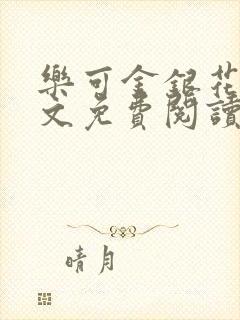 樂可金銀花
文免費閱讀
晴月